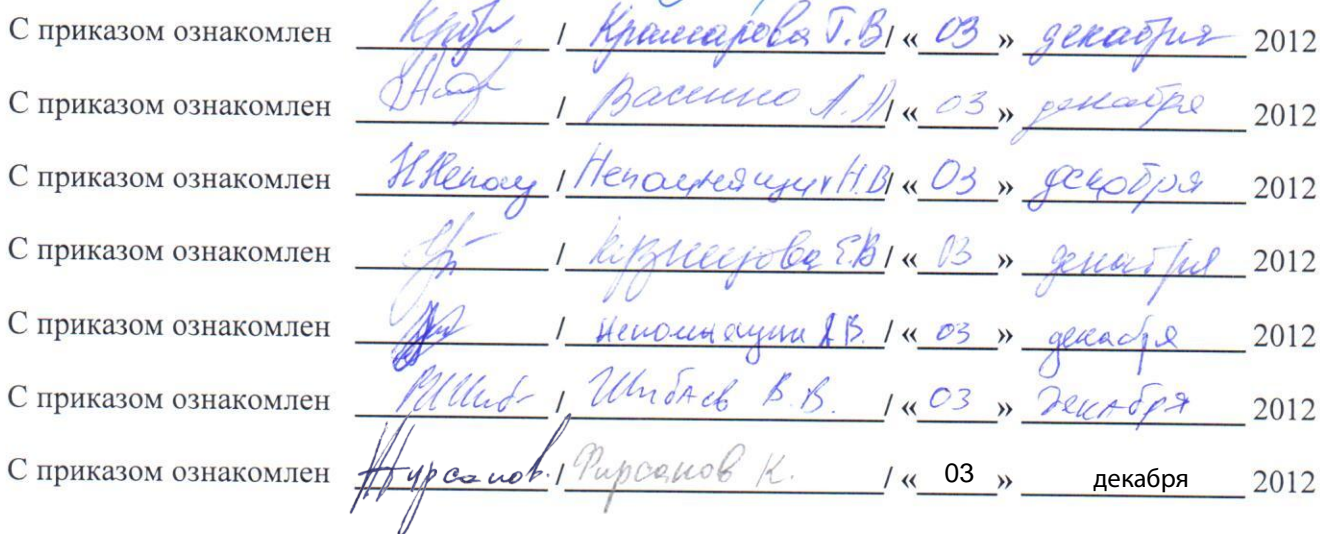 С приказом ознакомлен / Крамарова Т.В / « 03 » декабря 2012
С приказом ознакомлен / Васенко Л.Л / « 03 » декабря 2012
С приказом ознакомлен Непомнящих / Непомнящих Н.В / « 03 » декабря 2012
С приказом ознакомлен / Кузнецова Е.В / « 03 » декабря 2012
С приказом ознакомлен / Непомнящих А.В. / « 03 » декабря 2012
С приказом ознакомлен / Шибаев В.В. / « 03 » декабря 2012
С приказом ознакомлен Фирсанов. / Фирсанов К. / « 03 » декабря 2012